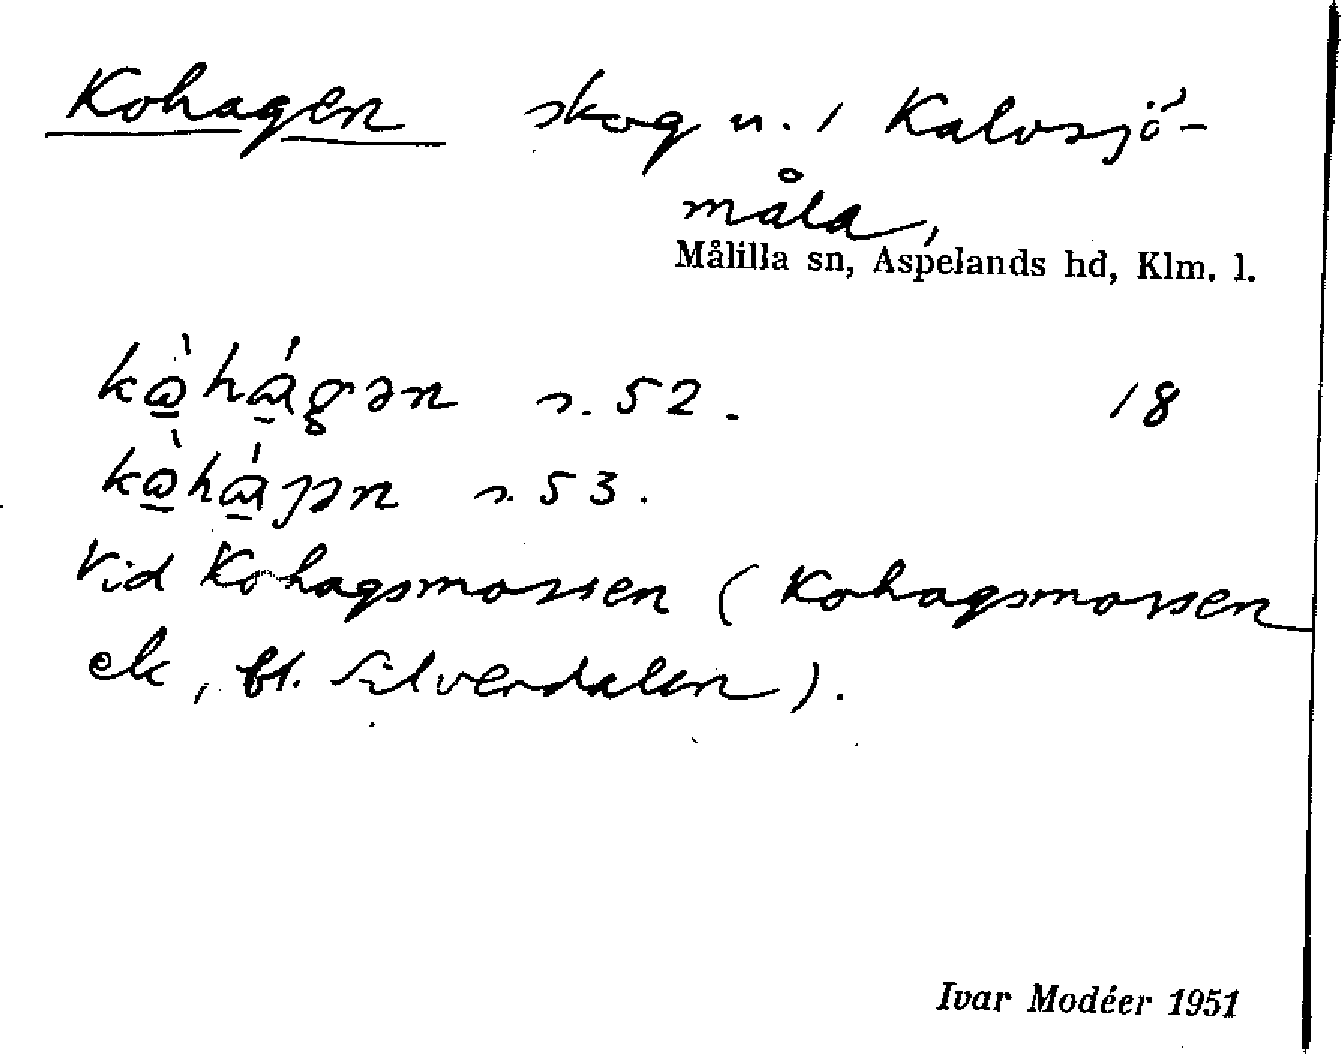 Kohagen skog n. / Kalvsjö-
måla,
Målilla sn, Aspelands hd, Klm. l.
kò̱há̱gən s. 52. 18
kò̱há̱jən s. 53.
Vid Kohagsmossen (Kohagsmossen
ek, bl. Silverdalen).
Ivar Modéer 1951